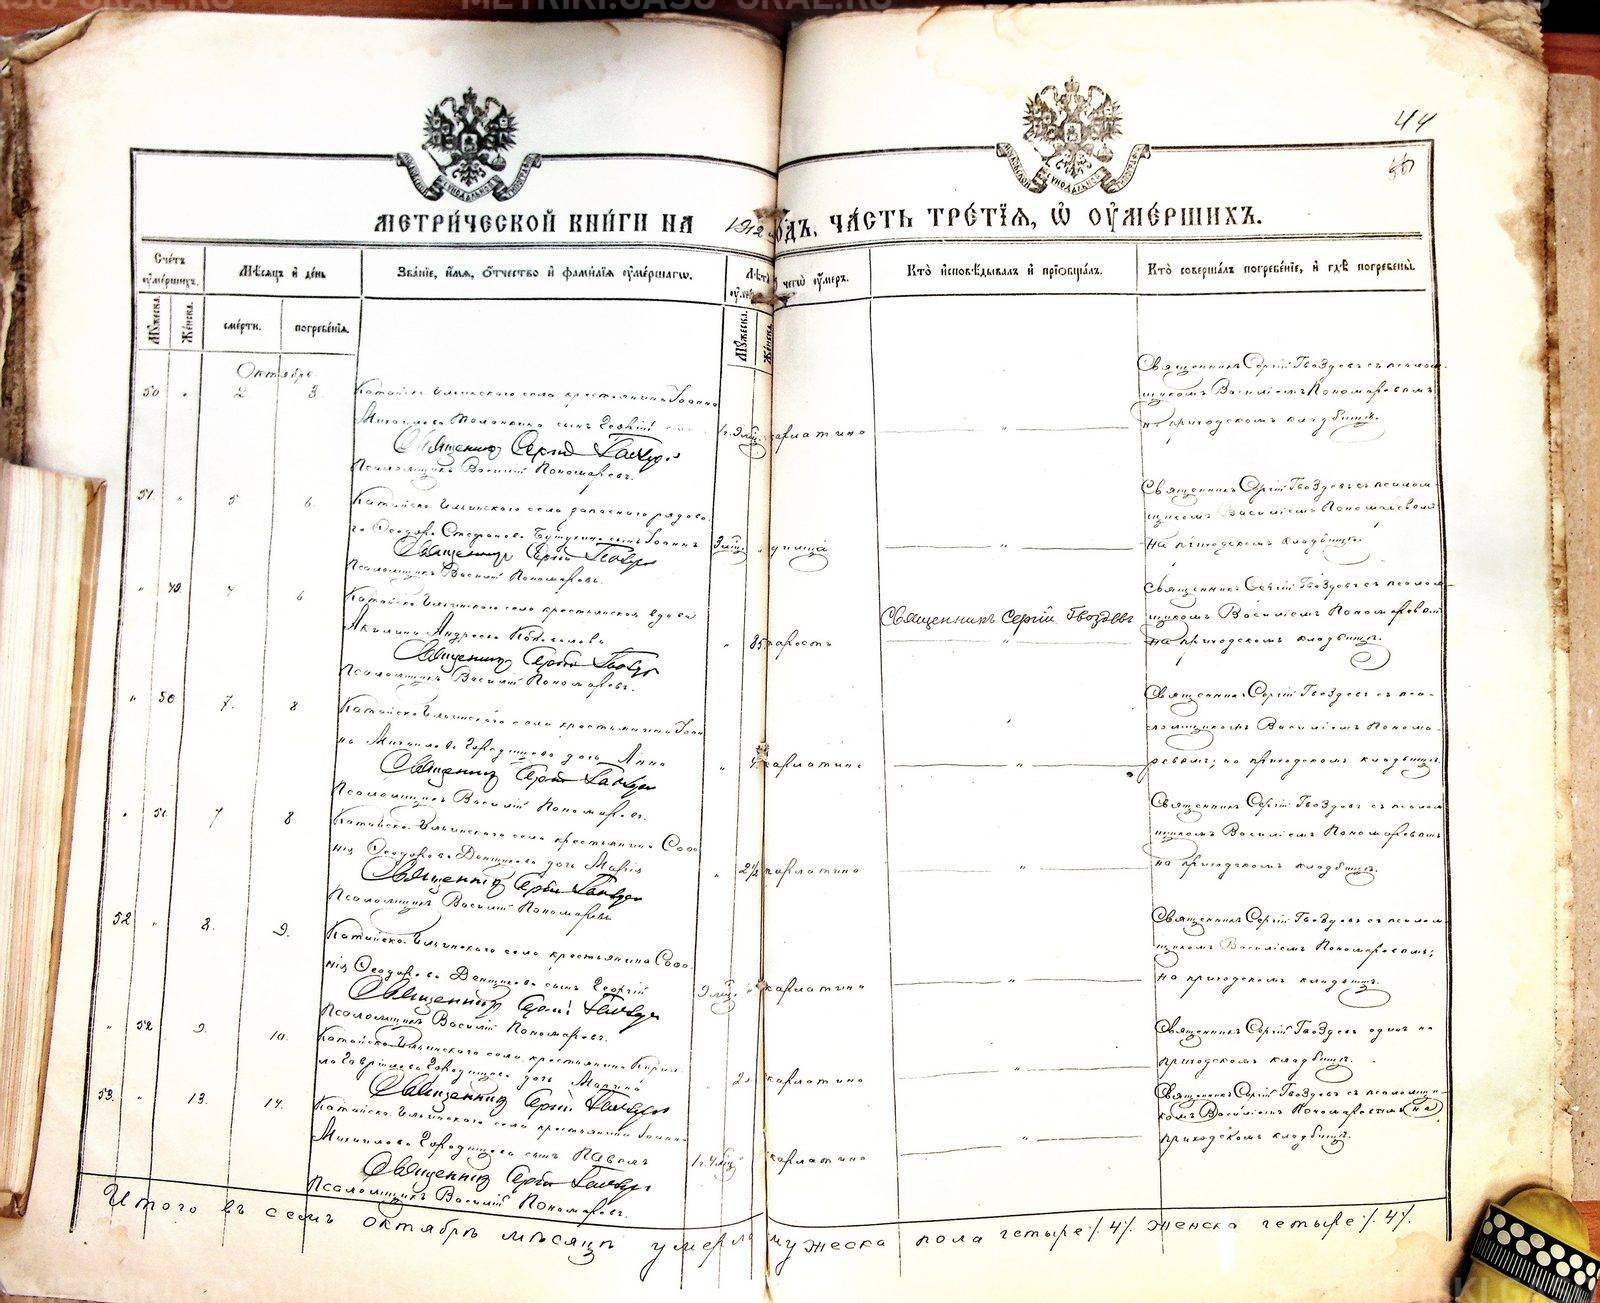 METRIKI.GASO-URAL.RU
44
МЕТРИ́ЧЕСКОЙ КНИ́ГИ НА 1912 ГОДЪ, ЧА́СТЬ ТРЕ́ТІЯ, Ѡ ОУМЕ́РШИХЪ.
Сче́тъ оумершихъ.
Мѣсяцъ и день
Званіе, имя, отчество и фамилія оумершагѡ.
Лѣта оумер
чегѡ оумеръ.
Кто исповѣдывалъ и пріобщалъ.
Кто совершалъ погребеніе, и гдѣ погребены.
Мужеска.
Женска.
смерти.
погребенія.
Мужеска.
Женска.
Октябрь
50 " 2 3
Катайско-Ильинскаго села крестьянина Іоанна
Михаилова сынъ Георгій 1 г. 9 мѣс. скарлатина
Священникъ Сергій Гвоздевъ
Псаломщикъ Василій Пономаревъ.
Священникъ Сергій Гвоздевъ съ псалом-
щикомъ Василіемъ Пономаревымъ
на приходскомъ кладбищѣ.
51 " 5 6
Катайско-Ильинскаго села запаснаго рядово-
го Ѳеодора Стефанова сынъ Іоаннъ 3 мѣс. "
Священникъ Сергій Гвоздевъ
Псаломщикъ Василій Пономаревъ.
Священникъ Сергій Гвоздевъ съ псалом-
щикомъ Василіемъ Пономаревымъ
на приходскомъ кладбищѣ.
" 49 4 6
Катайско-Ильинскаго села крестьянская вдова
Акилина Андреева " 85 старость
Священникъ Сергій Гвоздевъ
Псаломщикъ Василій Пономаревъ.
Священникъ Сергій Гвоздевъ
Священникъ Сергій Гвоздевъ съ псалом-
щикомъ Василіемъ Пономаревым
на приходскомъ кладбищѣ.
" 50 7. 8
Катайско-Ильинскаго села крестьянина Іоан-
на Михаилова Городищева дочь Анна " 4 скарлатина
Священникъ Сергій Гвоздевъ
Псаломщикъ Василій Пономаревъ.
Священникъ Сергій Гвоздевъ съ пса-
ломщикомъ Василіемъ Понома-
ревымъ; на приходскомъ кладбищѣ.
" 51 7 8
Катайско-Ильинскаго села крестьянина Софо-
нія Ѳеодорова Денщикова дочь Марія " 2½ скарлатина
Священникъ Сергій Гвоздевъ
Псаломщикъ Василій Пономаревъ
Священникъ Сергій Гвоздевъ съ псалом-
щикомъ Василіемъ Пономаревымъ
на приходскомъ кладбищѣ.
52 " 8. 9.
Катайско-Ильинскаго села крестьянина Софо-
нія Ѳеодорова Денщикова сынъ Георгій 9 мѣс. " скарлатина
Священникъ Сергій Гвоздевъ
Псаломщикъ Василій Пономаревъ.
Священникъ Сергій Гвоздевъ съ псалом-
щикомъ Василіемъ Пономаревымъ;
на приходскомъ кладбищѣ.
" 52 9. 10.
Катайско-Ильинскаго села крестьянина Кирил-
ла Гавріилова Городищева дочь Марина 2 скарлатина
Священникъ Сергій Гвоздевъ
Священникъ Сергій Гвоздевъ одинъ на
приходскомъ кладбищѣ.
53. " 13. 14.
Катайско-Ильинскаго села крестьянина Іоанна
Михаилова Городищева сынъ Павелъ 1 г. 4 мѣс. скарлатина
Священникъ Сергій Гвоздевъ
Псаломщикъ Василій Пономаревъ.
Священникъ Сергій Гвоздевъ съ псаломщи-
комъ Василіемъ Пономаревымъ на
приходскомъ кладбищѣ.
Итого въ семъ октябрѣ мѣсяцѣ умерло мужеска пола четыре /. 4 /. женска четыре /. 4 /.